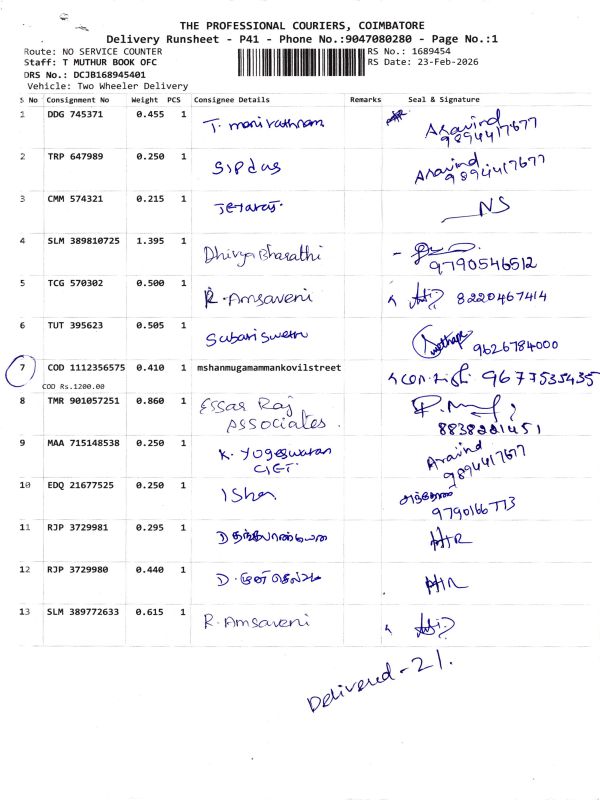 THE PROFESSIONAL COURIERS, COIMBATORE
Delivery Runsheet - P41 - Phone No.:9047080280 - Page No.:1
Route: NO SERVICE COUNTER
RS No.: 1689454
Staff: T MUTHUR BOOK OFC
RS Date: 23-Feb-2026
DRS No.: DCJB168945401
Vehicle: Two Wheeler Delivery
S No Consignment No Weight PCS Consignee Details Remarks Seal & Signature
1 DDG 745371 0.455 1 T. manirathnam Aravind
9894417677
2 TRP 647989 0.250 1 Sipdas Aravind
9894417677
3 CMM 574321 0.215 1 NS
4 SLM 389810725 1.395 1 Dhivya Bharathi
9790546512
5 TCG 570302 0.500 1 R. Amsaveni 8220467414
6 TUT 395623 0.505 1 9626784000
7 COD 1112356575 0.410 1 mshanmugamammankovilstreet 9677535435
COD Rs.1200.00
8 TMR 901057251 0.860 1 Essar Raj
Associates.
8838221451
9 MAA 715148538 0.250 1 K. Yogeswaran Aravind
CIET 9894417677
10 EDQ 21677525 0.250 1
9790166773
11 RJP 3729981 0.295 1
12 RJP 3729980 0.440 1
13 SLM 389772633 0.615 1 R. Amsaveni
Delivered - 21.